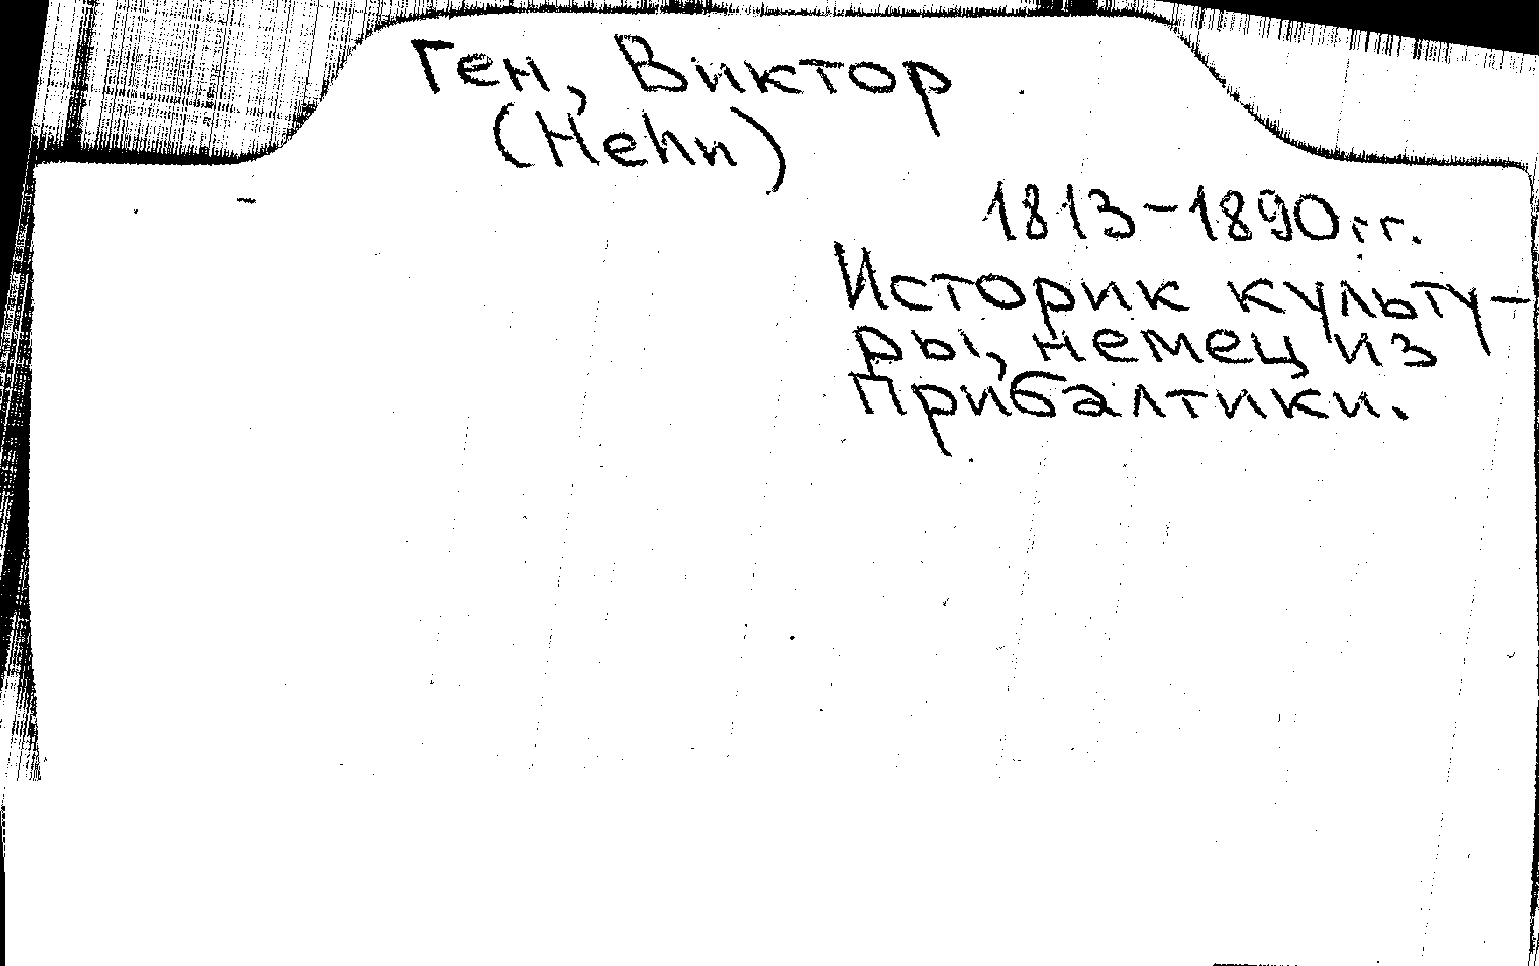 Ген, Виктор
(Hehn)
1813-1890 гг.
Историк культу-
ры, немец из
Прибалтики.